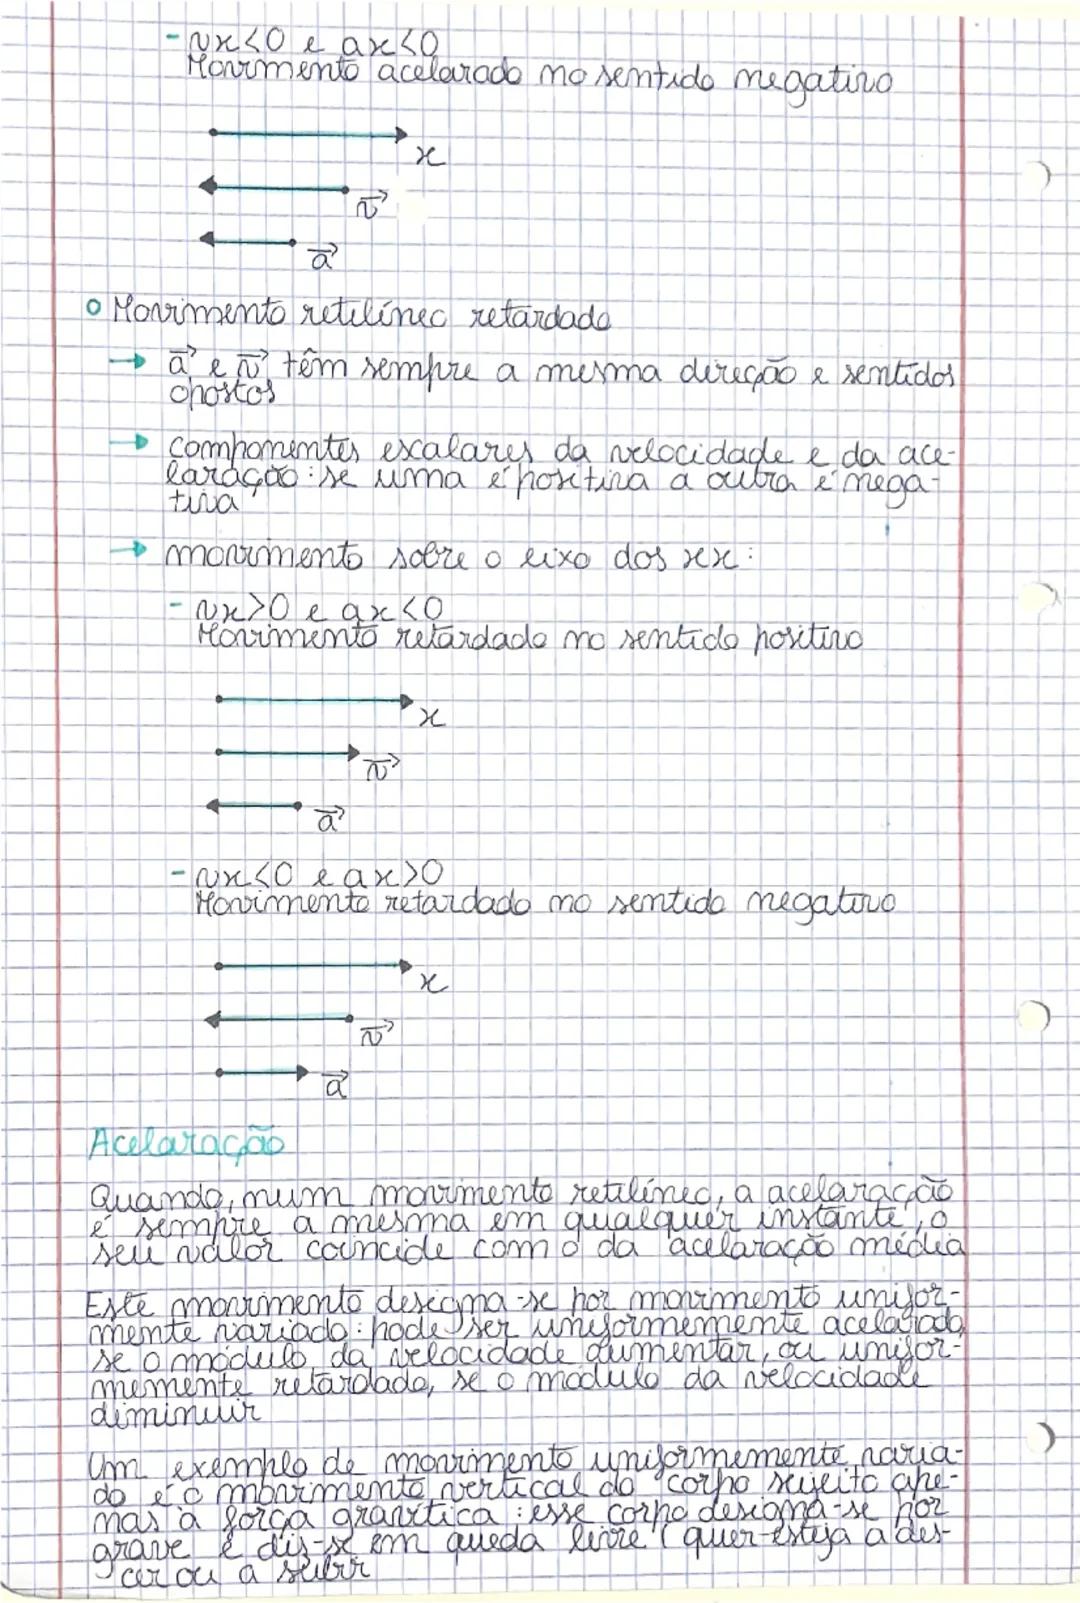 - vx<0 e ax<0
Movimento acelarado no sentido negativo
x
v
a
o Movimento retilíneo retardado
→ a e v têm sempre a mesma direção e sentidos
opostos
→ componentes escalares da velocidade e da ace-
laração: se uma é positiva a outra é nega-
tiva
→ movimento sobre o eixo dos xx:
- vx>0 e ax<0
Movimento retardado no sentido positivo
x
v
a
- vx<0 e ax>0
Movimento retardado no sentido negativo
x
v
a
Acelaração
Quando, num movimento retilíneo, a acelaração
é sempre a mesma em qualquer instante, o
seu valor coincide com o da acelaração média
Este movimento designa-se por movimento unifor-
mente variado: pode ser uniformemente acelarado,
se o módulo da velocidade aumentar, ou unifor-
memente retardado, se o módulo da velocidade
diminuir
Um exemplo de movimento uniformemente varia-
do é o movimento vertical do corpo sujeito ape-
nas à força gravítica: esse corpo designa-se por
grave e dis-se em queda livre (quer esteja a des-
cer ou a subir